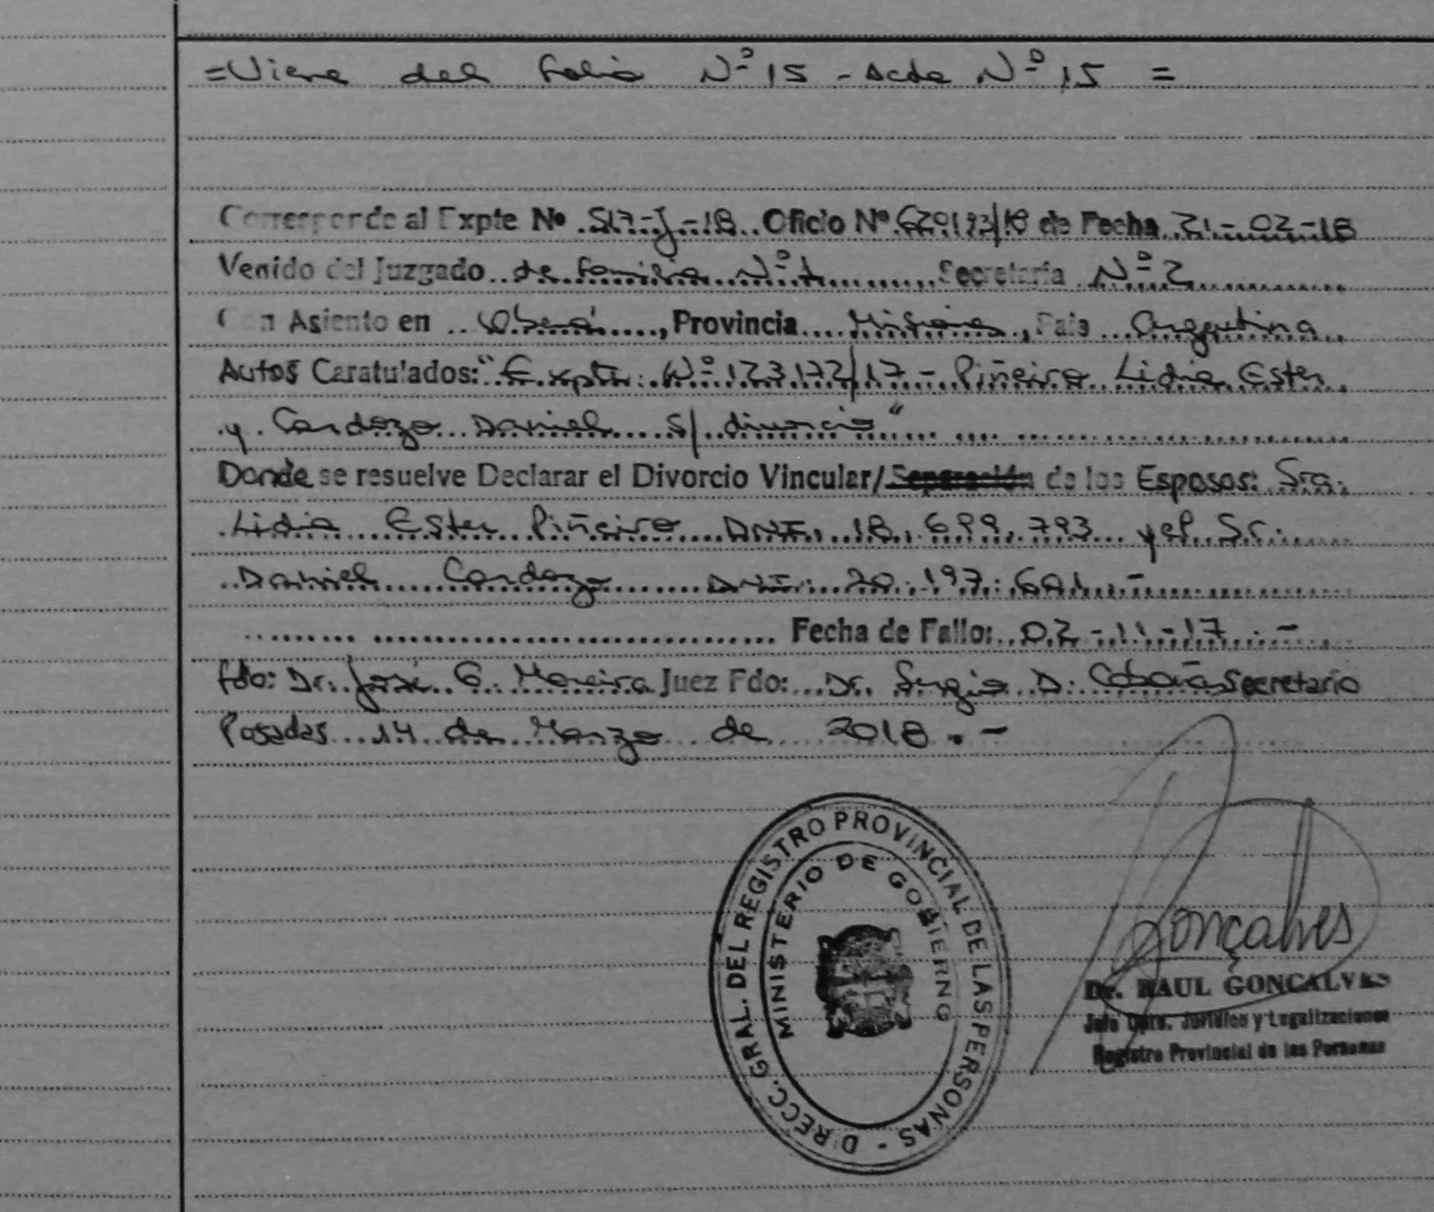 =Viene del Folio Nº 15 - Acta Nº 15 =
Corresponde al Expte Nº 517-J-18 Oficio Nº /18 de Fecha 21-02-18
Venido del Juzgado de Familia Nº 1 Secretaría Nº 2
Con Asiento en Oberá, Provincia Misiones, País Argentina
Autos Caratulados: "Expte. Nº 123172/17 - Piñeiro Lidia Ester
y Cardozo Daniel s/ divorcio"
Donde se resuelve Declarar el Divorcio Vincular/Separación de los Esposos: Sra.
Lidia Ester Piñeiro DNI. 18.699.793 y el Sr.
Daniel Cardozo DNI. 20.197.601.-
Fecha de Fallo: 02-11-17.-
Fdo: Dr. José G. Moreira Juez Fdo: Dr. Sergio D. Secretario
Posadas 14 de Marzo de 2018.-
DIRECC. GRAL. DEL REGISTRO PROVINCIAL DE LAS PERSONAS -
MINISTERIO DE GOBIERNO
Gonçalves
Dr. RAUL GONCALVES
Jefe Dpto. Jurídico y Legalizaciones
Registro Provincial de las Personas